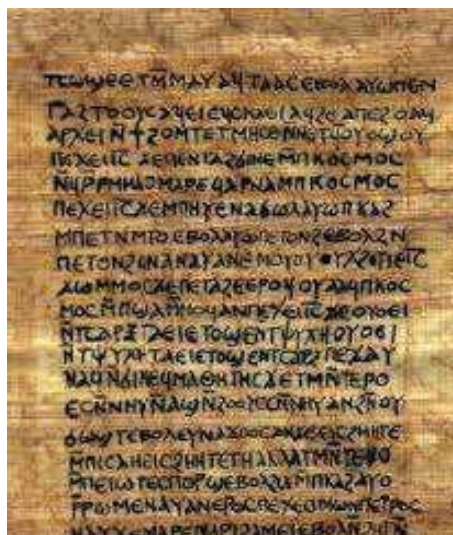 ⲧⲥⲱϣⲉ ⲉⲧⲙ̄ⲙⲁⲩ ⲁϥⲧⲁⲁⲥ ⲉⲃⲟⲗ ⲁⲩⲱ ⲡⲉⲛ
ⲧⲁϩⲧⲟⲟⲩⲥ ⲁϥⲉⲓ ⲉϥⲥⲕⲁⲉⲓ ⲁϥϩⲉ ⲁⲡⲉϩⲟ ⲁϥ
ⲁⲣⲭⲉⲓ ⲛ̄ϯ ϩⲟⲙⲧ ⲉⲧⲙⲏⲥⲉ ⲛ̄ⲛⲉⲧϥⲟⲩⲟϣⲟⲩ
ⲡⲉϫⲉ ⲓ̅ⲥ̅ ϫⲉ ⲡⲉⲛⲧⲁϩϭⲓⲛⲉ ⲙ̄ⲡⲕⲟⲥⲙⲟⲥ
ⲛ̄ϥⲣ̄ ⲣⲙ̄ⲙⲁⲟ ⲙⲁⲣⲉϥⲁⲣⲛⲁ ⲙ̄ⲡⲕⲟⲥⲙⲟⲥ
ⲡⲉϫⲉ ⲓ̅ⲥ̅ ϫⲉ ⲙ̄ⲡⲏⲩⲉ ⲛⲁϭⲱⲗ ⲁⲩⲱ ⲡⲕⲁϩ
ⲙ̄ⲡⲉⲧⲛ̄ⲙ̄ⲧⲟ ⲉⲃⲟⲗ ⲁⲩⲱ ⲡⲉⲧⲟⲛϩ ⲉⲃⲟⲗ ϩⲛ̄
ⲡⲉⲧⲟⲛϩ ϥⲛⲁⲛⲁⲩ ⲁⲛ ⲉⲙⲟⲩ
ϫⲱ ⲙ̄ⲙⲟⲥ ϫⲉ ⲡⲉⲧⲁϩⲉ ⲉⲣⲟϥ ⲟⲩⲁⲁϥ ⲡⲕⲟⲥ
ⲙⲟⲥ ⲙ̄ⲡϣⲁ ⲙ̄ⲙⲟϥ ⲁⲛ ⲡⲉϫⲉ ⲓ̅ⲥ̅ ϫⲉ ⲟⲩⲟⲉⲓ
ⲛ̄ⲧⲥⲁⲣⲝ ⲧⲁⲉⲓ ⲉⲧⲟϣⲉ ⲛ̄ⲧⲯⲩⲭⲏ ⲟⲩⲟⲉⲓ
ⲛ̄ⲧⲯⲩⲭⲏ ⲧⲁⲉⲓ ⲉⲧⲟϣⲉ ⲛ̄ⲧⲥⲁⲣⲝ ⲡⲉϫⲁⲩ
ⲛⲁϥ ⲛ̄ϭⲓ ⲛⲉϥⲙⲁⲑⲏⲧⲏⲥ ϫⲉ ⲧⲙⲛ̄ⲧⲉⲣⲟ
ⲉⲥⲛ̄ⲛⲏⲩ ⲛ̄ⲁϣ ⲛ̄ϩⲟⲟⲩ ⲉⲥⲛ̄ⲛⲏⲩ ⲁⲛ ϩⲛ̄ ⲟⲩ
ϭⲱϣⲧ ⲉⲃⲟⲗ ⲉⲩⲛⲁϫⲟⲟⲥ ⲁⲛ ϫⲉ ⲉⲓⲥ ϩⲏⲏⲧⲉ
ⲙ̄ⲡⲓⲥⲁ ⲏ ⲉⲓⲥ ϩⲏⲏⲧⲉ ⲧⲏ ⲁⲗⲗⲁ ⲧⲙⲛ̄ⲧⲉⲣⲟ
ⲙ̄ⲡⲉⲓⲱⲧ ⲉⲥⲡⲟⲣϣ ⲉⲃⲟⲗ ϩⲓϫⲙ̄ ⲡⲕⲁϩ ⲁⲩⲱ
ⲣ̄ⲣⲱⲙⲉ ⲛⲁⲩ ⲁⲛ ⲉⲣⲟⲥ ⲡⲉϫⲉ ⲥⲓⲙⲱⲛ ⲡⲉⲧⲣⲟⲥ
ⲛⲁⲩ ϫⲉ ⲙⲁⲣⲉ ⲙⲁⲣⲓϩⲁⲙ ⲉⲓ ⲉⲃⲟⲗ ⲛ̄ϩⲏⲧⲛ̄